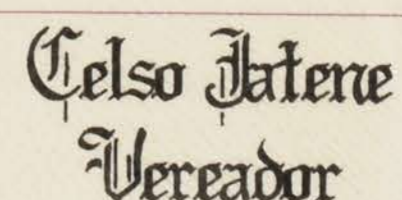 Celso Jatene
Vereador